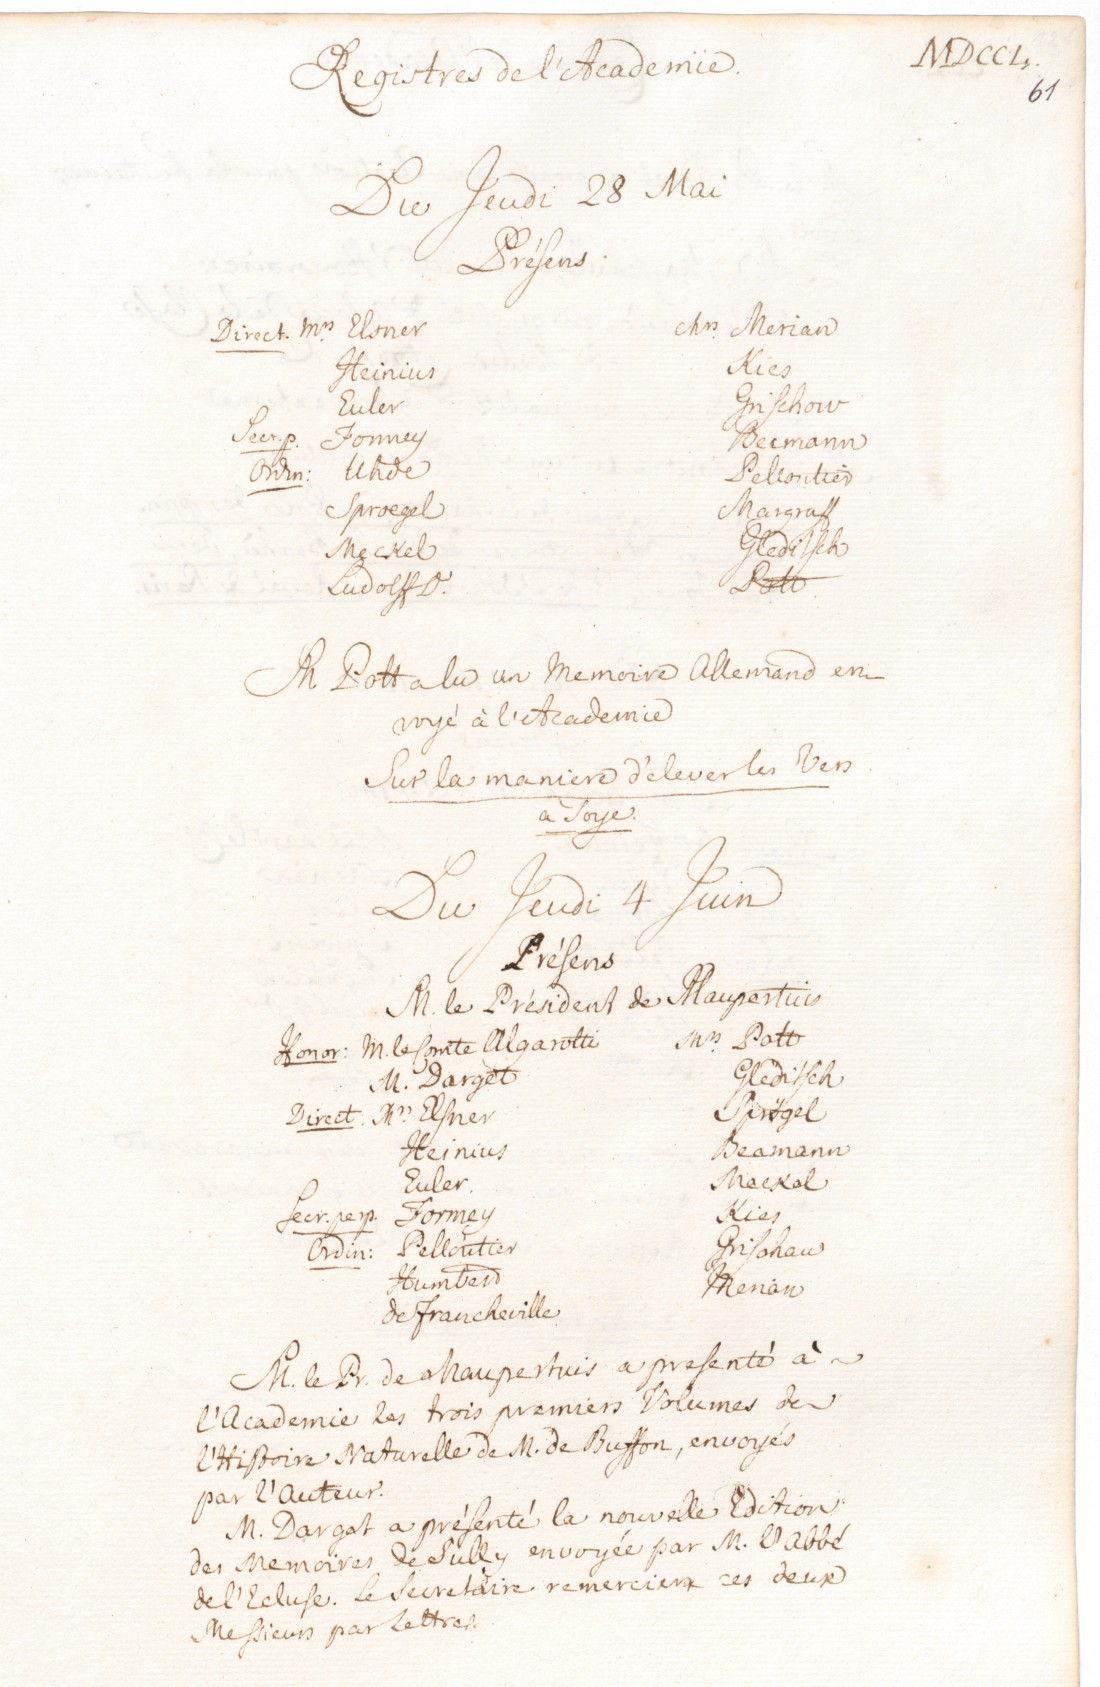 Registres de l'Academie.
MDCCL.
61
Du Jeudi 28 Mai
Présens.
Direct. Mrs Elsner
Heinius
Euler
Secr. p. Formey
Ordin: Uhde
Sproegel
Meckel
Ludolff D.
Mrs. Merian
Kies
Grischow
Becmann
Pelloutier
Margraff
Gleditsch
Pott.
M Pott a lu un Memoire Allemand en-
voyé à l'Academie
Sur la maniere d'elever les Vers
à Soye.
Du Jeudi 4 Juin
Présens
M. le Président de Maupertuis
Honor: M. le Comte Algarotti
M. Darget
Direct. Mrs Elsner
Heinius
Euler.
Secr. perp. Formey
Ordin: Pelloutier
Humberd
de Francheville
Mrs Pott
Gleditsch
Sprögel
Beamann
Meckel
Kies
Grischau
Merian
M. le Pr. de Maupertuis a presenté à
l'Academie les trois premiers Volumes de
l'Histoire Naturelle de M. de Buffon, envoyés
par l'Auteur.
M. Darget a présenté la nouvelle Edition
des Memoires de Sully envoyée par M. l'Abbé
de l'Ecluse. Le Secretaire remerciera ces deux
Messieurs par Lettres.